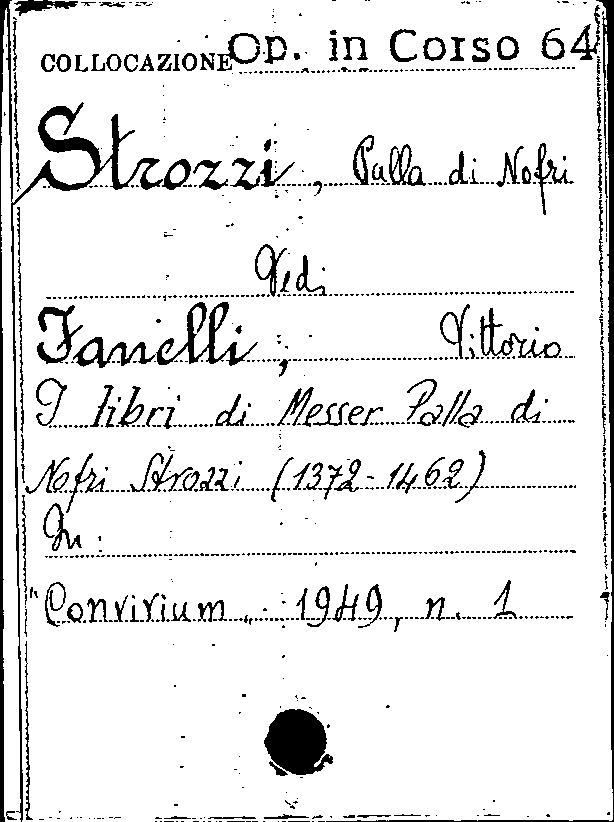 COLLOCAZIONE Op. in Corso 64
Strozzi, Palla di Nofri
Vedi
Fanelli, Vittorio
I libri di Messer Palla di
Nofri Strozzi (1372-1462)
In:
"Convivium„ 1949, n. 1